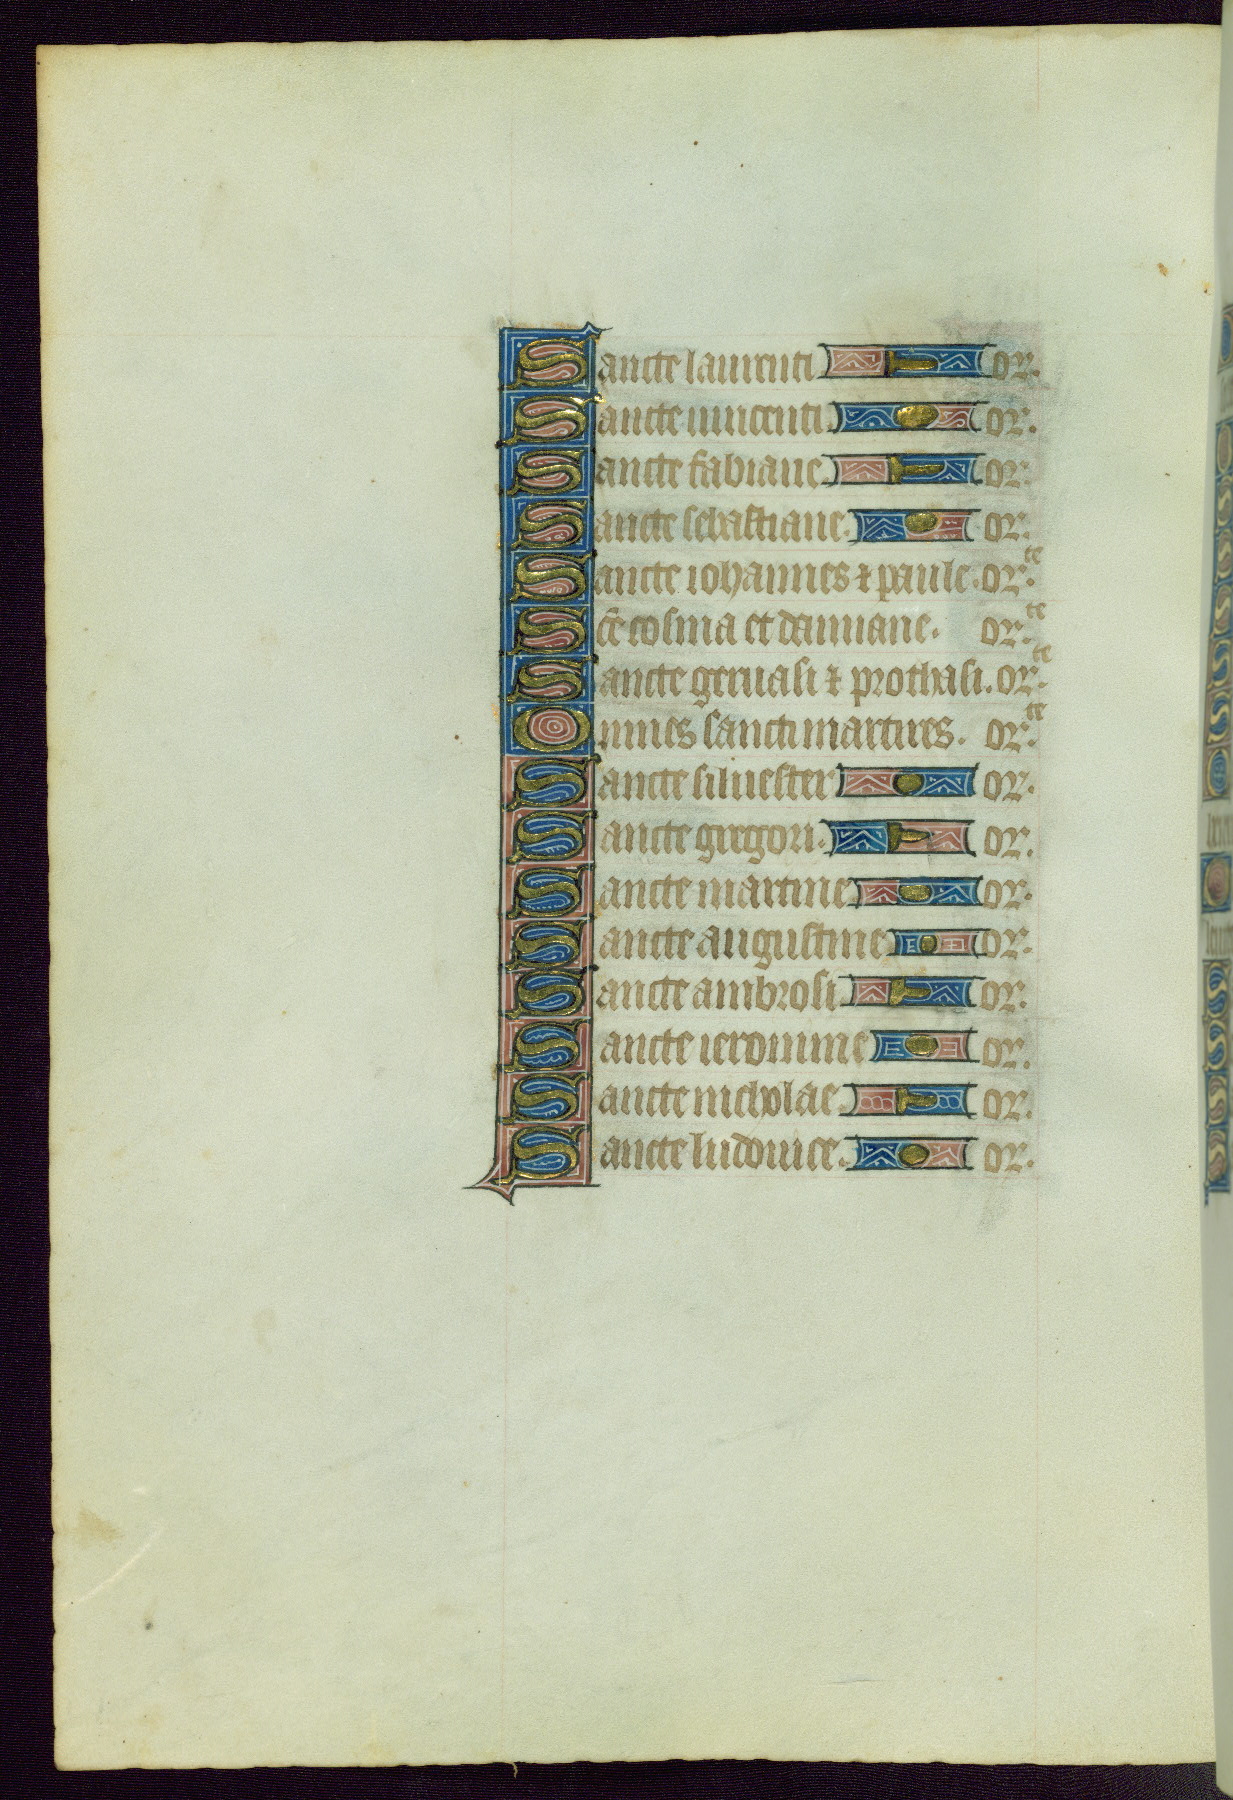 Sancte laurenti or.
Sancte uincenti. or.
Sancte fabiane. or.
Sancte sebastiane. or.
Sancte iohannes ⁊ paule. or.te
Sce cosma et damiane. or.te
Sancte geruasi ⁊ prothasi. or.te
Omnes sancti martires. or.te
Sancte siluester or.
Sancte gregori. or.
Sancte martine or.
Sancte augustine or.
Sancte ambrosi. or.
Sancte ieronime or.
Sancte nicholae. or.
Sancte ludouice. or.